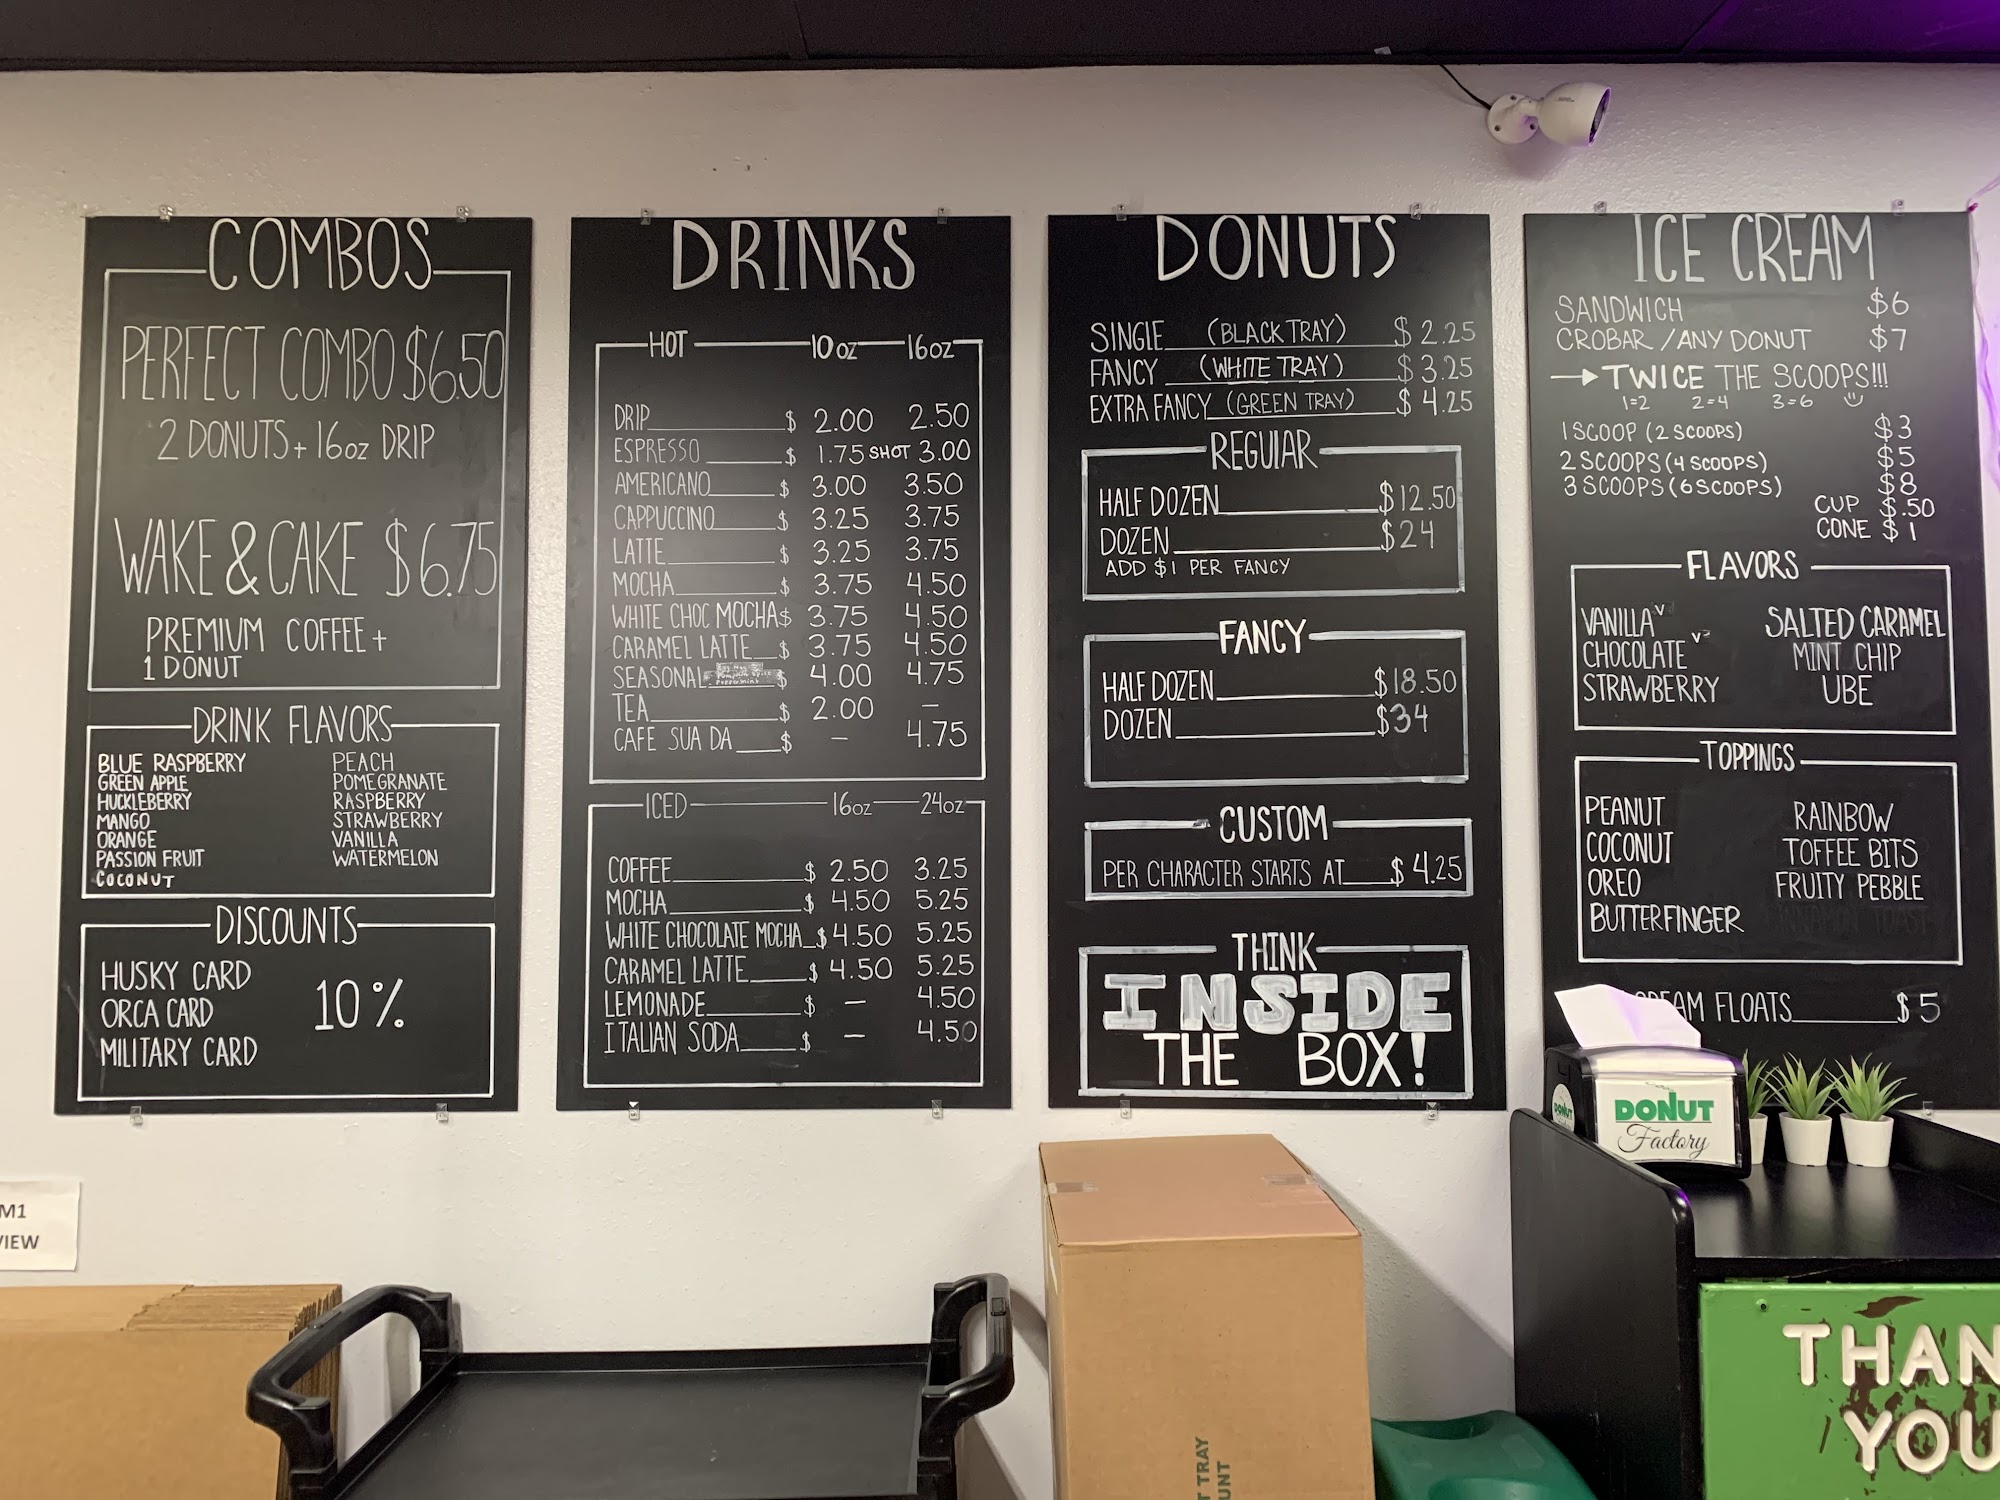 COMBOS
PERFECT COMBO $6.50
2 DONUTS + 16oz DRIP
WAKE & CAKE $6.75
PREMIUM COFFEE +
1 DONUT
DRINK FLAVORS
BLUE RASPBERRY PEACH
GREEN APPLE POMEGRANATE
HUCKLEBERRY RASPBERRY
MANGO STRAWBERRY
ORANGE VANILLA
PASSION FRUIT WATERMELON
COCONUT
DISCOUNTS
HUSKY CARD
ORCA CARD 10%
MILITARY CARD
DRINKS
HOT 10oz 16oz
DRIP $ 2.00 2.50
ESPRESSO $ 1.75 SHOT 3.00
AMERICANO $ 3.00 3.50
CAPPUCCINO $ 3.25 3.75
LATTE $ 3.25 3.75
MOCHA $ 3.75 4.50
WHITE CHOC MOCHA $ 3.75 4.50
CARAMEL LATTE $ 3.75 4.50
SEASONAL $ 4.00 4.75
TEA $ 2.00 –
CAFE SUA DA $ – 4.75
ICED 16oz 24oz
COFFEE $ 2.50 3.25
MOCHA $ 4.50 5.25
WHITE CHOCOLATE MOCHA $ 4.50 5.25
CARAMEL LATTE $ 4.50 5.25
LEMONADE $ – 4.50
ITALIAN SODA $ – 4.50
DONUTS
SINGLE (BLACK TRAY) $ 2.25
FANCY (WHITE TRAY) $ 3.25
EXTRA FANCY (GREEN TRAY) $ 4.25
REGULAR
HALF DOZEN $12.50
DOZEN $24
ADD $1 PER FANCY
FANCY
HALF DOZEN $18.50
DOZEN $34
CUSTOM
PER CHARACTER STARTS AT $ 4.25
THINK
INSIDE
THE BOX!
ICE CREAM
SANDWICH $6
CROBAR / ANY DONUT $7
→ TWICE THE SCOOPS!!!
1=2 2=4 3=6
1 SCOOP (2 SCOOPS) $3
2 SCOOPS (4 SCOOPS) $5
3 SCOOPS (6 SCOOPS) $8
CUP $.50
CONE $1
FLAVORS
VANILLA V SALTED CARAMEL
CHOCOLATE V MINT CHIP
STRAWBERRY UBE
TOPPINGS
PEANUT RAINBOW
COCONUT TOFFEE BITS
OREO FRUITY PEBBLE
BUTTERFINGER
FLOATS $5
DONUT
Factory
THAN
YOU
M1
VIEW